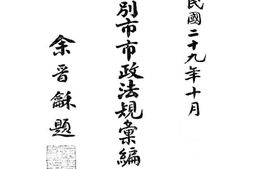 民國二十九年十月
別市市政法規彙編
余晉龢題